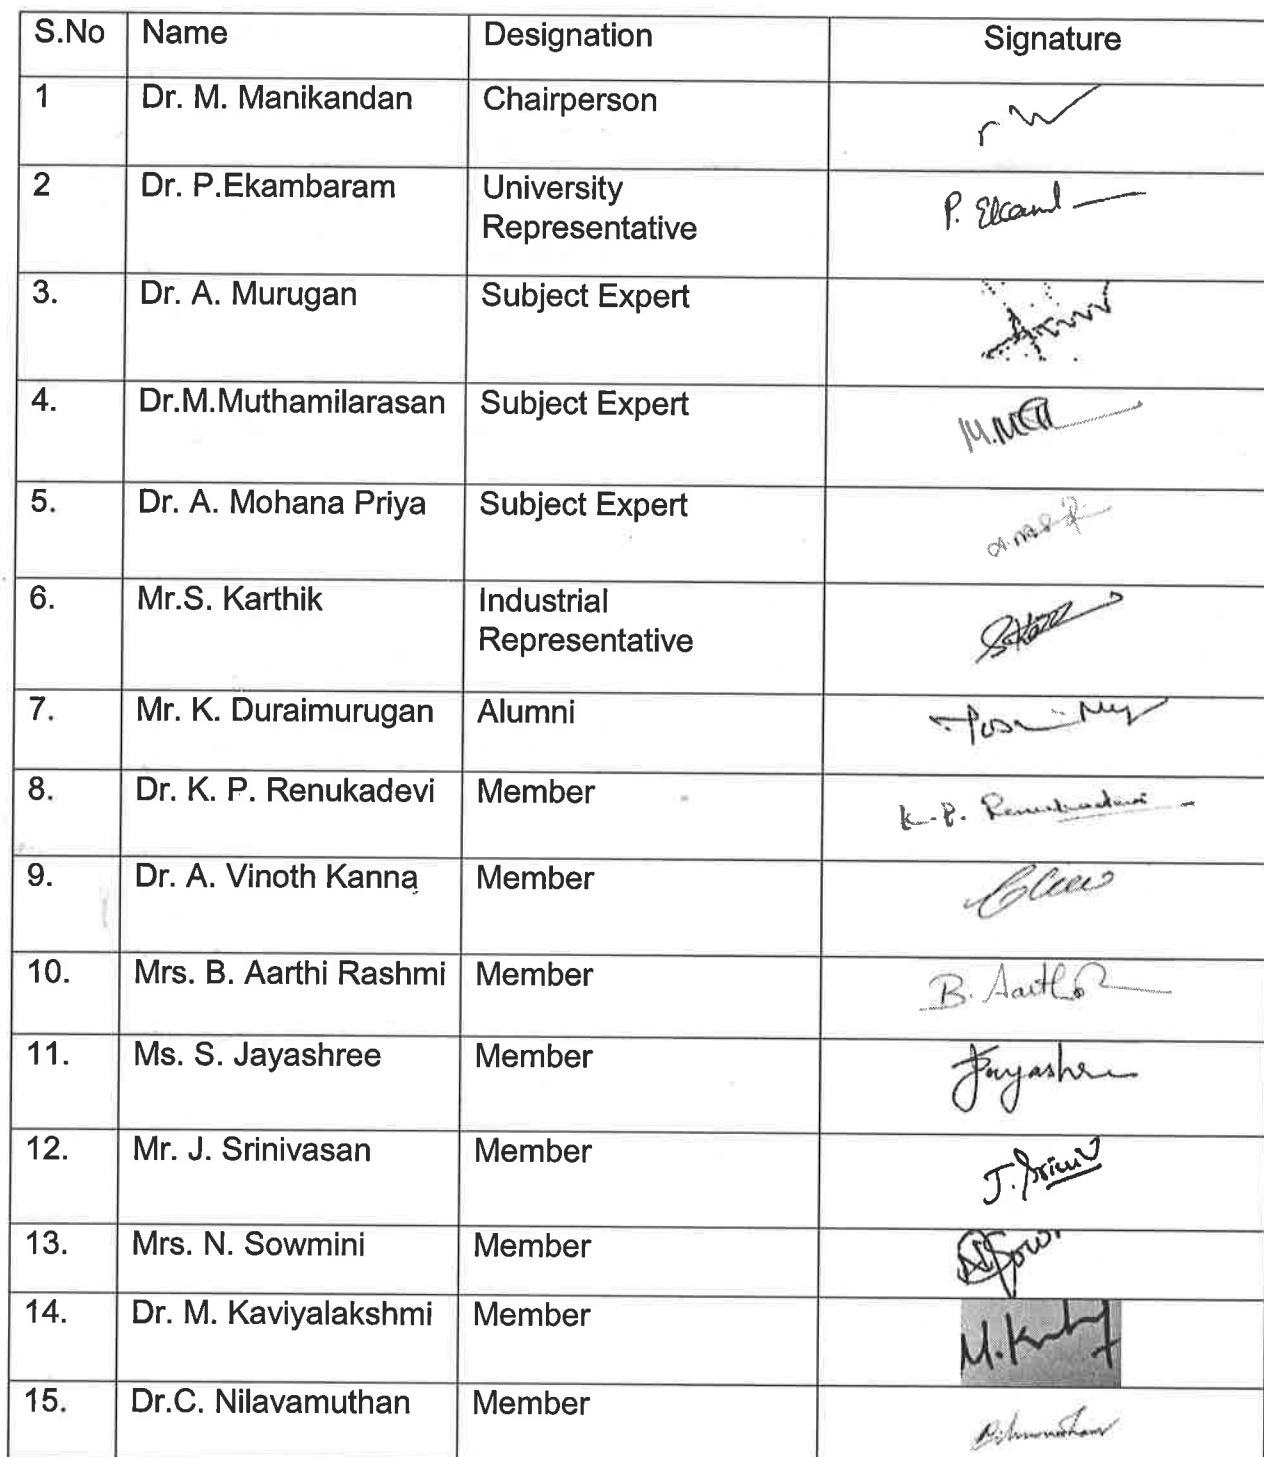 S.No Name Designation Signature
1 Dr. M. Manikandan Chairperson
2 Dr. P.Ekambaram University
Representative
3. Dr. A. Murugan Subject Expert
4. Dr.M.Muthamilarasan Subject Expert
5. Dr. A. Mohana Priya Subject Expert
6. Mr.S. Karthik Industrial
Representative
7. Mr. K. Duraimurugan Alumni
8. Dr. K. P. Renukadevi Member K.P. Renukadevi
9. Dr. A. Vinoth Kanna Member
10. Mrs. B. Aarthi Rashmi Member B. Aarthi
11. Ms. S. Jayashree Member
12. Mr. J. Srinivasan Member
13. Mrs. N. Sowmini Member
14. Dr. M. Kaviyalakshmi Member
15. Dr.C. Nilavamuthan Member